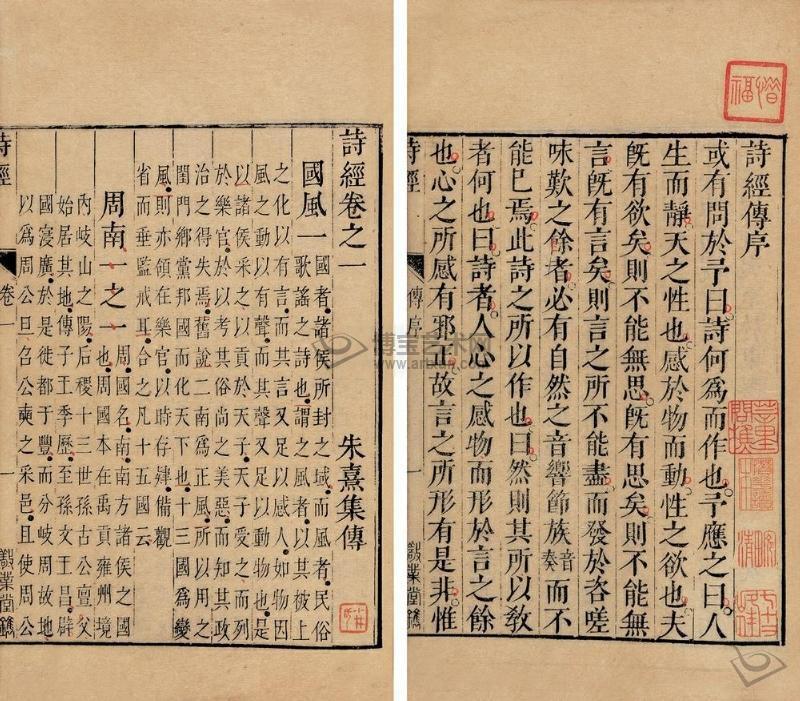 詩經傳序
或有問於予曰詩何爲而作也予應之曰人
生而靜天之性也感於物而動性之欲也夫
旣有欲矣則不能無思旣有思矣則不能無
言旣有言矣則言之所不能盡而發於咨嗟
味歎之餘者必有自然之音響節族音奏而不
能已焉此詩之所以作也曰然則其所以敎
者何也曰詩者人心之感物而形於言之餘
也心之所感有邪正故言之所形有是非惟
詩經 傳序
惜福
詩經卷之一
朱熹集傳
國風一
國者諸侯所封之域而風者民俗
歌謠之詩也謂之風者以其被上
之化以有言而其言又足以感人如物因
風之動以有聲而其聲又足以動物也是
以諸侯采之以貢於天子天子受之而列
於樂官於以考其俗尚之美惡而知其政
治之得失焉舊說二南爲正風所以用之
閨門鄉黨邦國而化天下也十三國爲變
風則亦領在樂官以時存肄備觀
省而垂監戒耳合之凡十五國云
周南一之一
周國名南南方諸侯之國
也周國本在禹貢雍州境
內岐山之陽后稷十三世孫古公亶父
始居其地傳子王季歷至孫文王昌辟
國寖廣於是徙都于豐而分岐周故地
以爲周公旦召公奭之采邑且使周公
詩經 卷一 一 業堂鐫
博宝艺术网